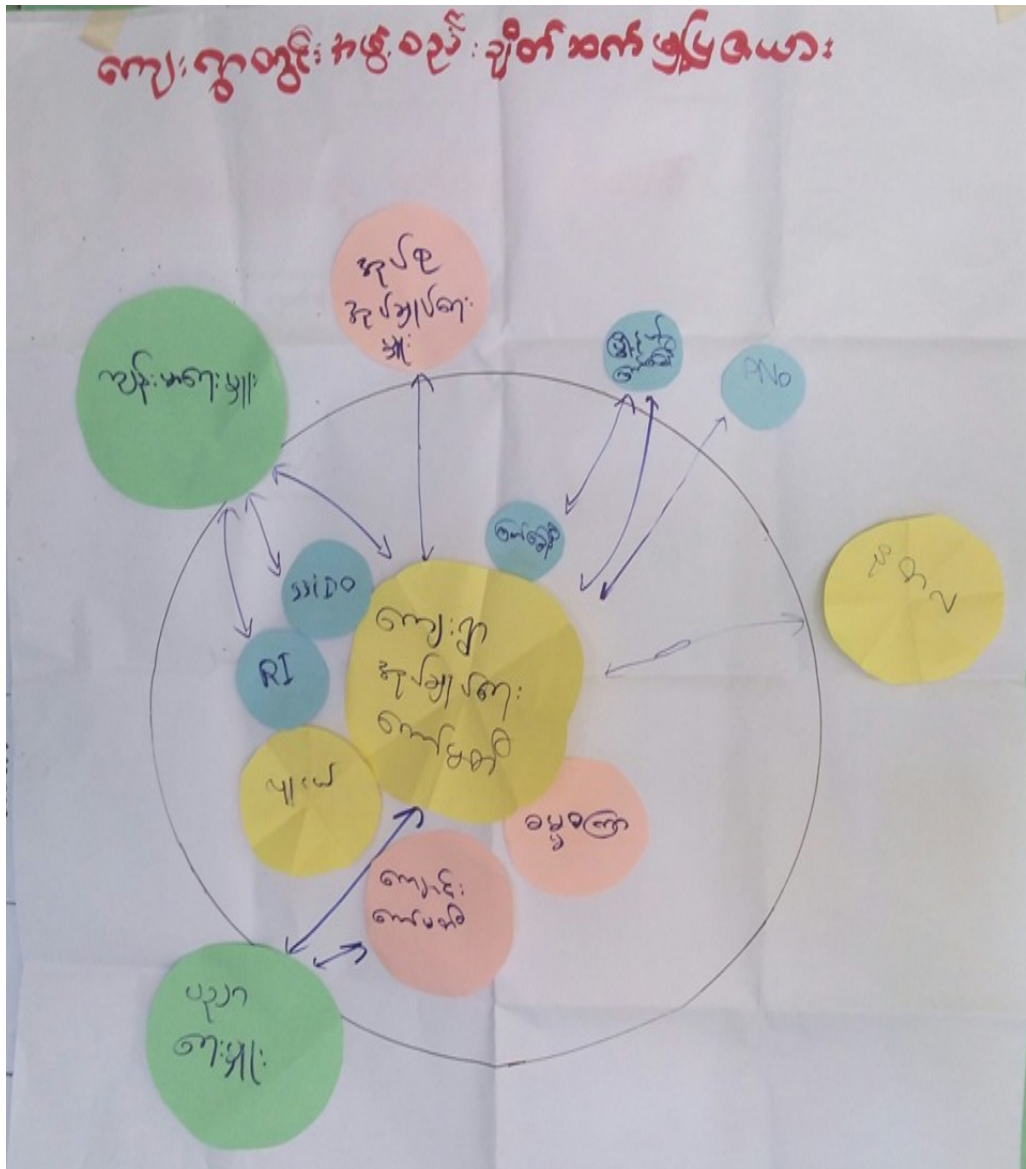 ကျေးရွာတွင်းအဖွဲ့စည်းချိတ်ဆက်မှုပြဇယား
အုပ်စု
အုပ်ချုပ်ရေး
မှူး
ကျန်းမာရေးမှူး
PNO
SSIDO
ကျေးရွာ
အုပ်ချုပ်ရေး
ကော်မတီ
RI
လူငယ်
ဓမ္မစကြာ
ကျောင်း
ကော်မတီ
ပညာ
ရေးမှူး